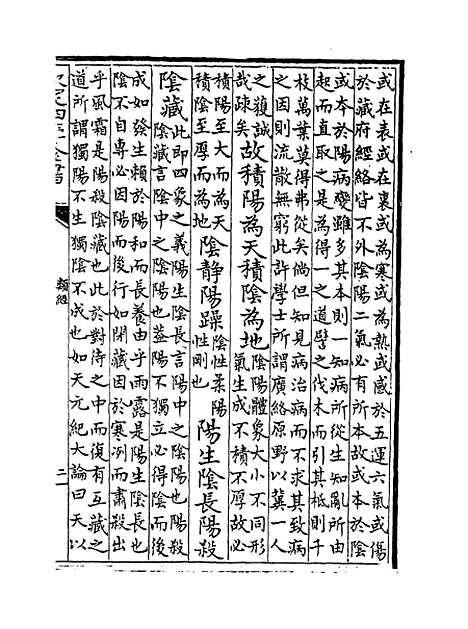 或在表或在裏或為寒或為熱或感於五運六氣或傷
於藏府經絡皆不外陰陽二氣必有所本故或本於陰
或本於陽病變雖多其本則一知病所從生知亂所由
起而直取之是為得一之道譬之伐木而引其柢則千
枝萬葉莫得弗從矣倘但知見病治病而不求其致病
之因則流散無窮此許學士所謂廣絡原野以冀一人
之獲誠
哉疎矣故積陽為天積陰為地陰陽體象大小不同形
氣生成不積不厚故必
積陽至大而為天
積陰至厚而為地陰靜陽躁陰性柔陽
性剛也陽生陰長陽殺
陰藏此即四象之義陽生陰長言陽中之陰陽也陽殺
陰藏言陰中之陰陽也蓋陽不獨立必得陰而後
成如發生賴於陽和而長養由乎雨露是陽生陰長也
陰不自專必因陽而後行如閉藏因於寒冽而肅殺出
乎風霜是陽殺陰藏也此於對待之中而復有互藏之
道所謂獨陽不生獨陰不成也如天元紀大論曰天以
欽定四庫全書
類經
二